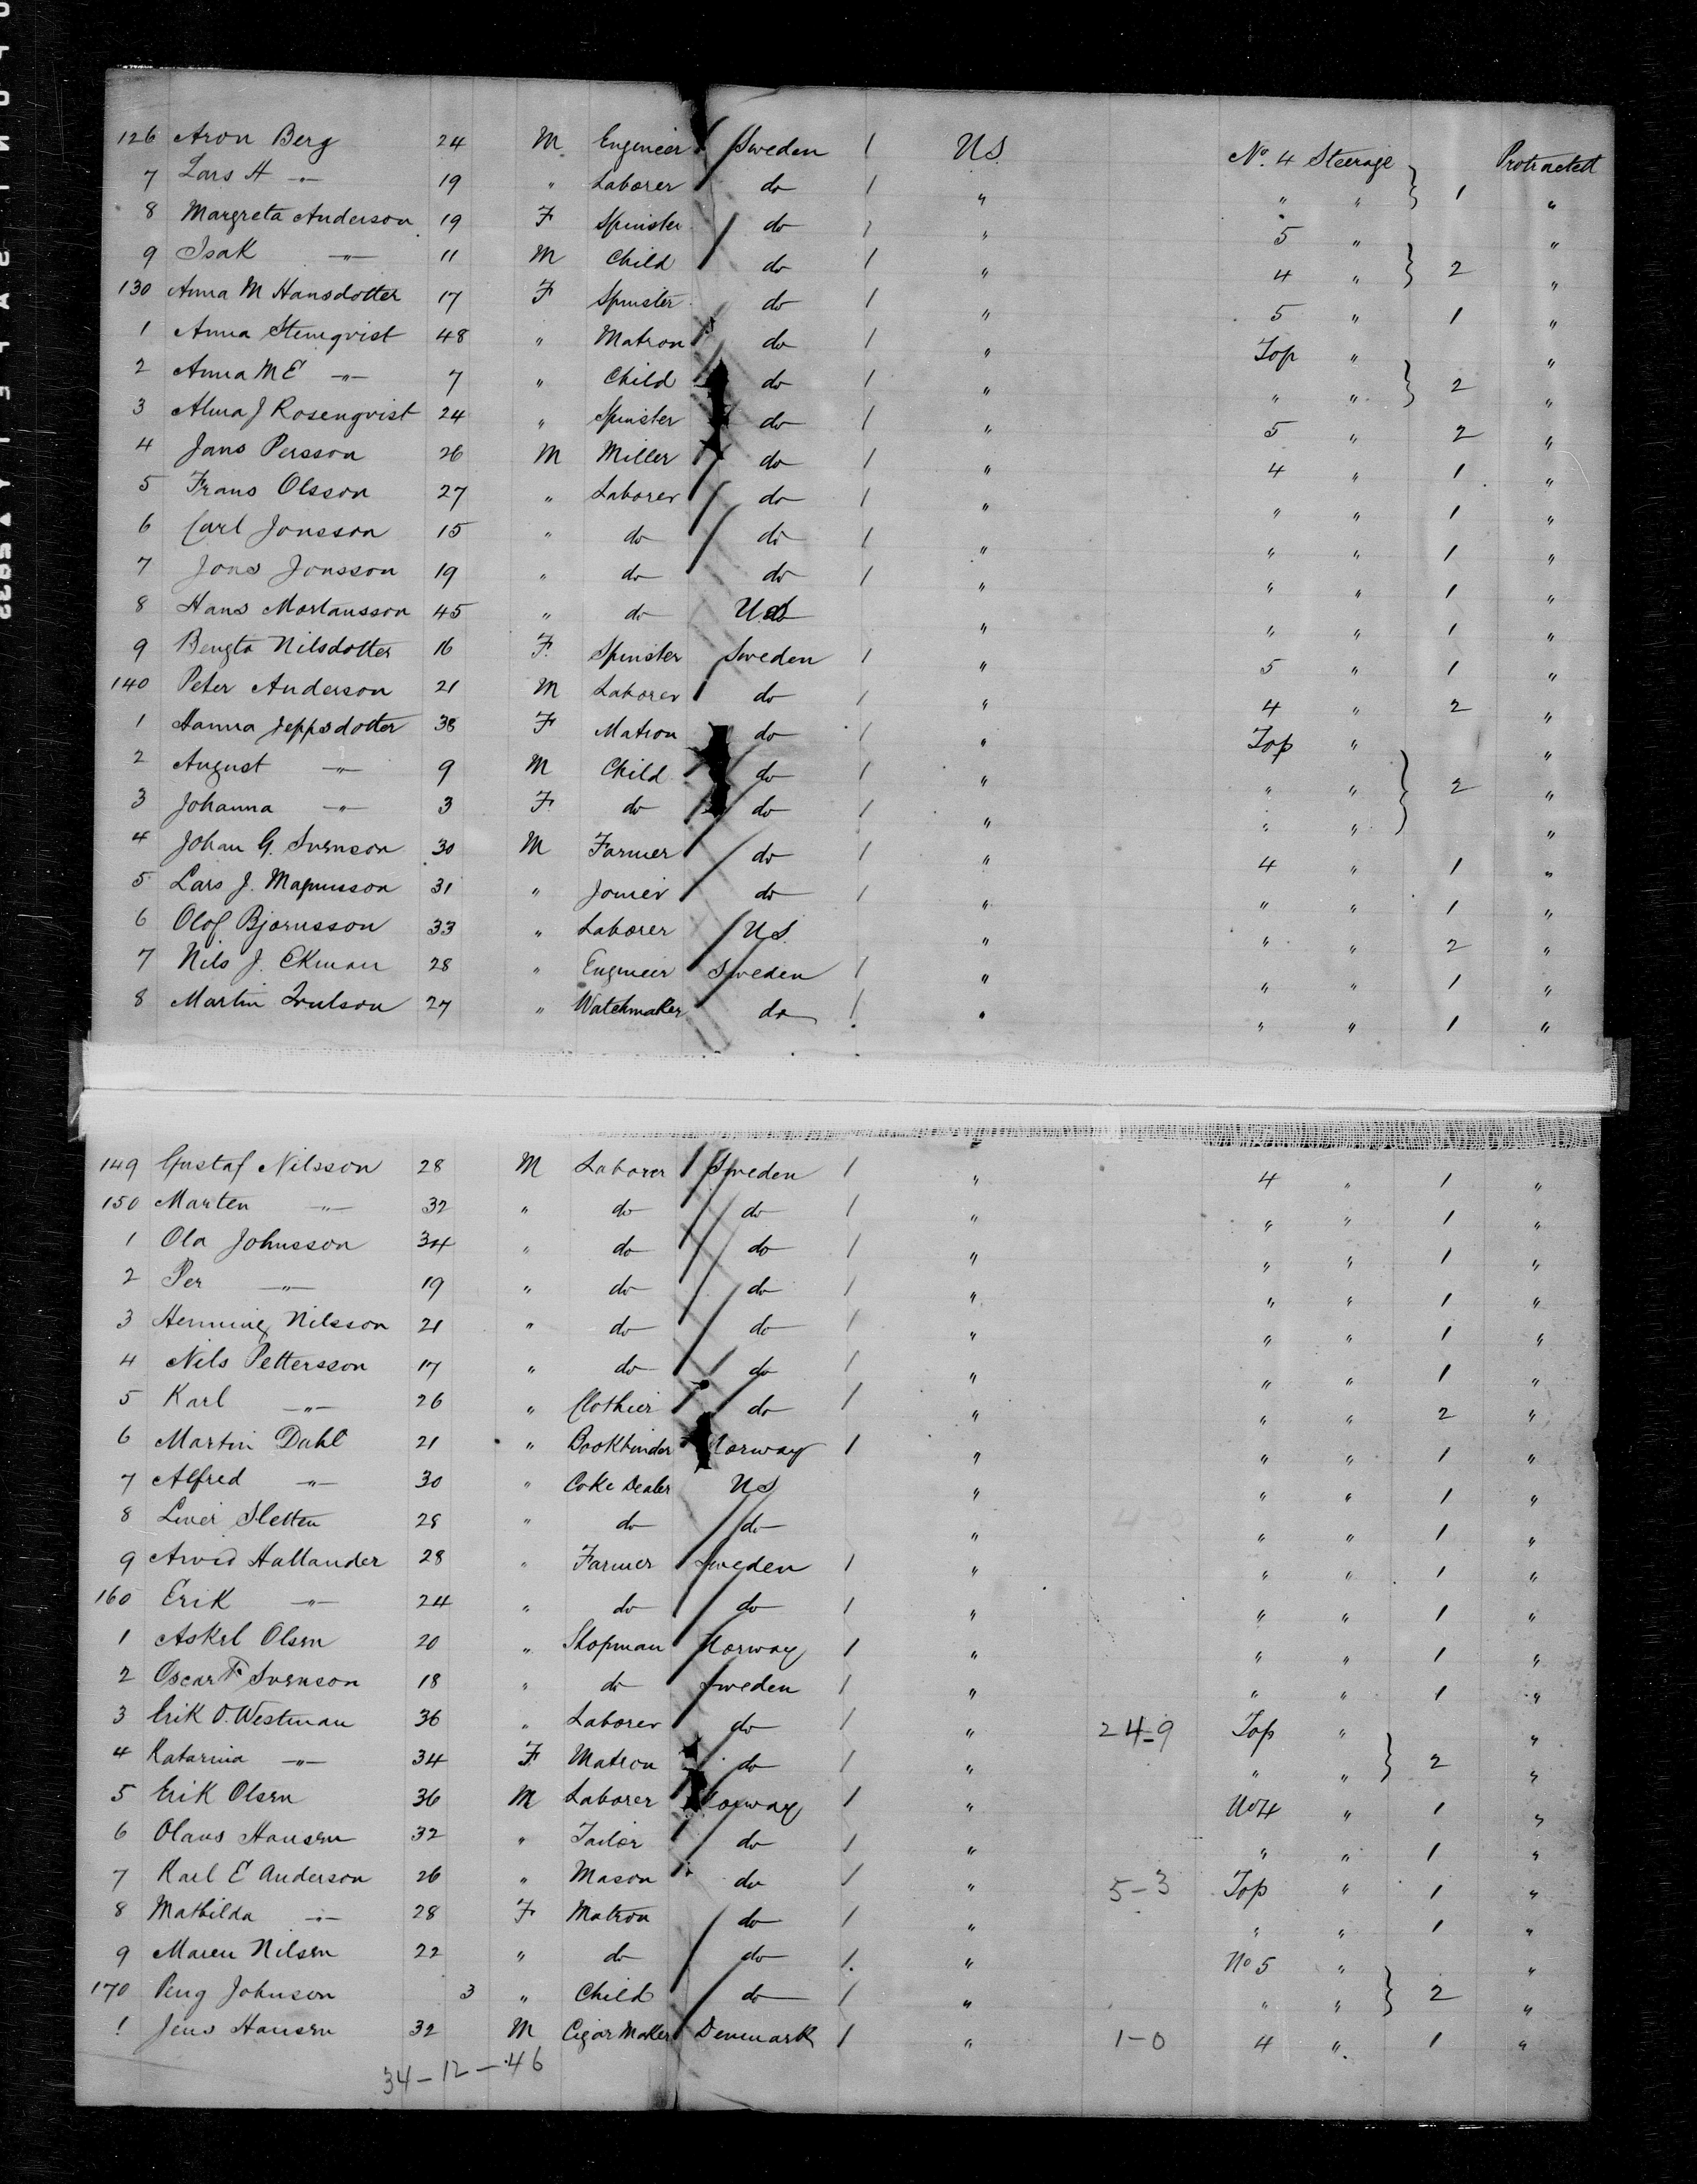 126 Aron Berg 24 M Engineer Sweden 1 U.S. No. 4 Steerage Protracted
7 Lars A -"- 19 " Laborer do 1 " " " } 1 "
8 Margreta Anderson 19 F Spinster do 1 " 5 " "
9 Isak -"- 11 M Child do 1 " 4 " } 2 "
130 Anna M Hansdotter 17 F Spinster do 1 " 5 " 1 "
1 Anna Stenqvist 48 " Matron do 1 " Top " "
2 Anna M E -"- 7 " Child do 1 " " " } 2 "
3 Alma J Rosenqvist 24 " Spinster do 1 " 5 " 2 "
4 Jans Persson 26 M Miller do 1 " 4 " 1 "
5 Frans Olsson 27 " Laborer do 1 " " " 1 "
6 Carl Jonsson 15 " do do 1 " " " 1 "
7 Jons Jonsson 19 " do do 1 " " " 1 "
8 Hans Mortansson 45 " do U.S. " " " 1 "
9 Bengta Nilsdotter 16 F. Spinster Sweden 1 " 5 " 1 "
140 Peter Anderson 21 M Laborer do 1 " 4 " 2 "
1 Hanna Jeppsdotter 38 F Matron do 1 " Top " "
2 August -"- 9 M Child do 1 " " " } 2 "
3 Johanna -"- 3 F do do 1 " " " "
4 Johan G. Svenson 30 M Farmer do 1 " 4 " 1 "
5 Lars J. Magnusson 31 " Joiner do 1 " " " 1 "
6 Olof Bjornsson 33 " Laborer U.S. " " " 2 "
7 Nils J. Ekman 28 " Engineer Sweden 1 " " " 1 "
8 Martin 27 " Watchmaker do 1 " " " 1 "
149 Gustaf Nilsson 28 M Laborer Sweden 1 " 4 " 1 "
150 Marten -"- 32 " do do 1 " " " 1 "
1 Ola Johnsson 34 " do do 1 " " " 1 "
2 Per -"- 19 " do do 1 " " " 1 "
3 Henning Nilsson 21 " do do 1 " " " 1 "
4 Nils Pettersson 17 " do do 1 " " " 1 "
5 Karl -"- 26 " Clothier do 1 " " " 2 "
6 Martin Dahl 21 " Bookbinder Norway 1 " " " 1 "
7 Alfred -"- 30 " Coke Dealer U.S. " " " 1 "
8 Sletten 28 " do do " " " 1 "
9 Arvid Hallander 28 " Farmer Sweden 1 " " " 1 "
160 Erik -"- 24 " do do 1 " " " 1 "
1 Askel Olsen 20 " Shopman Norway 1 " " " 1 "
2 Oscar F Svenson 18 " do Sweden 1 " " " 1 "
3 Erik O. Westman 36 " Laborer do 1 " 24-9 Top " "
4 Katarina -"- 34 F Matron do 1 " " " } 2 "
5 Erik Olsen 36 M Laborer Norway 1 " No 4 " 1 "
6 Olaus Hansen 32 " Tailor do 1 " " " 1 "
7 Karl E Anderson 26 " Mason do 1 " 5-3 Top " 1 "
8 Mathilda -"- 28 F Matron do 1 " " " 1 "
9 Maren Nilsen 22 " do do 1. " No 5 " "
170 Johnson 3 " Child do 1 " " " } 2 "
1 Jens Hansen 32 M Cigar Maker Denmark 1 " 1-0 4 " 1 "
34-12-46